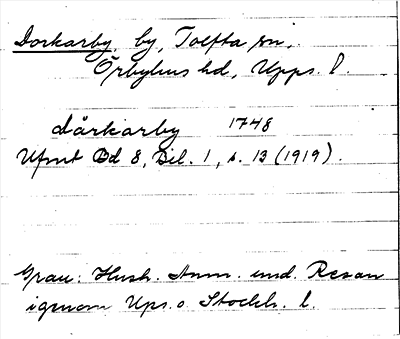 Dorkarby, by, Tolfta sn,
Örbyhus hd, Upps. l.
dårkarby 1748
Ufmt Bd 8, Bil. 1, s. 13 (1919).
Grau: Hush. Anm. und. Resan
igenom Ups. o. Stockh. l.